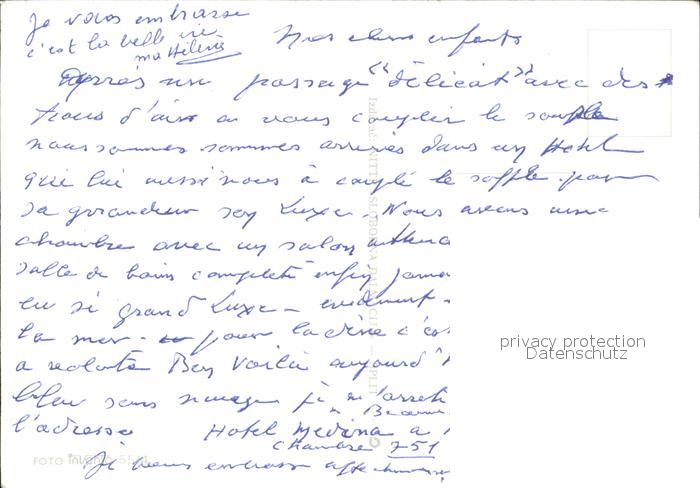 Je vous embrasse
c'est la belle vie
ma Hélène
Mes chers enfants
Après un passage "délicat" avec des
trous d'air a vous coupler le souffle
nous sommes sommes arrivés dans un Hotel
qui lui aussi nous à couplé le soffle par
sa grandeur son Luxe - Nous avons une
chambre avec un salon
salle de bains complete enfin jama
eu si grand Luxe - evidement -
la mer - pour la c'es
a volonté Bon Voila aujourd'
bleu sans nuages je m'arrete
l'adresse Hotel Medina a
chambre 751
je vous embrasse affectueuse
privacy protection
Datenschutz
FOTO
SPLIT